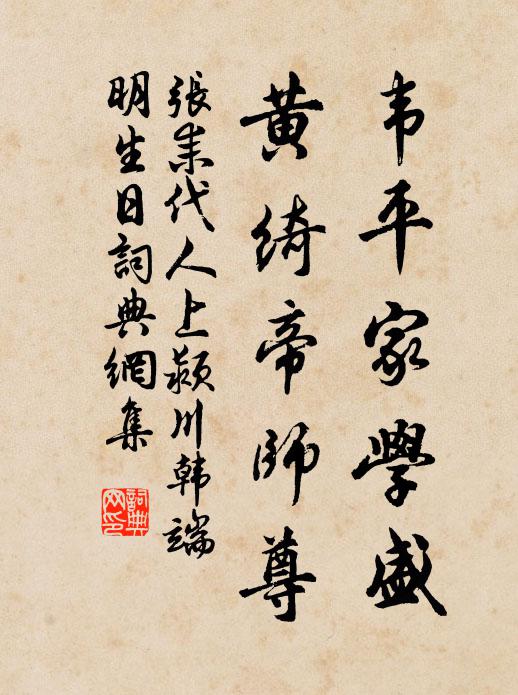 韦平家學盛
黄绮帝師尊
張耒代人上颍川韩端
明生日詞典網集
詞典
网印